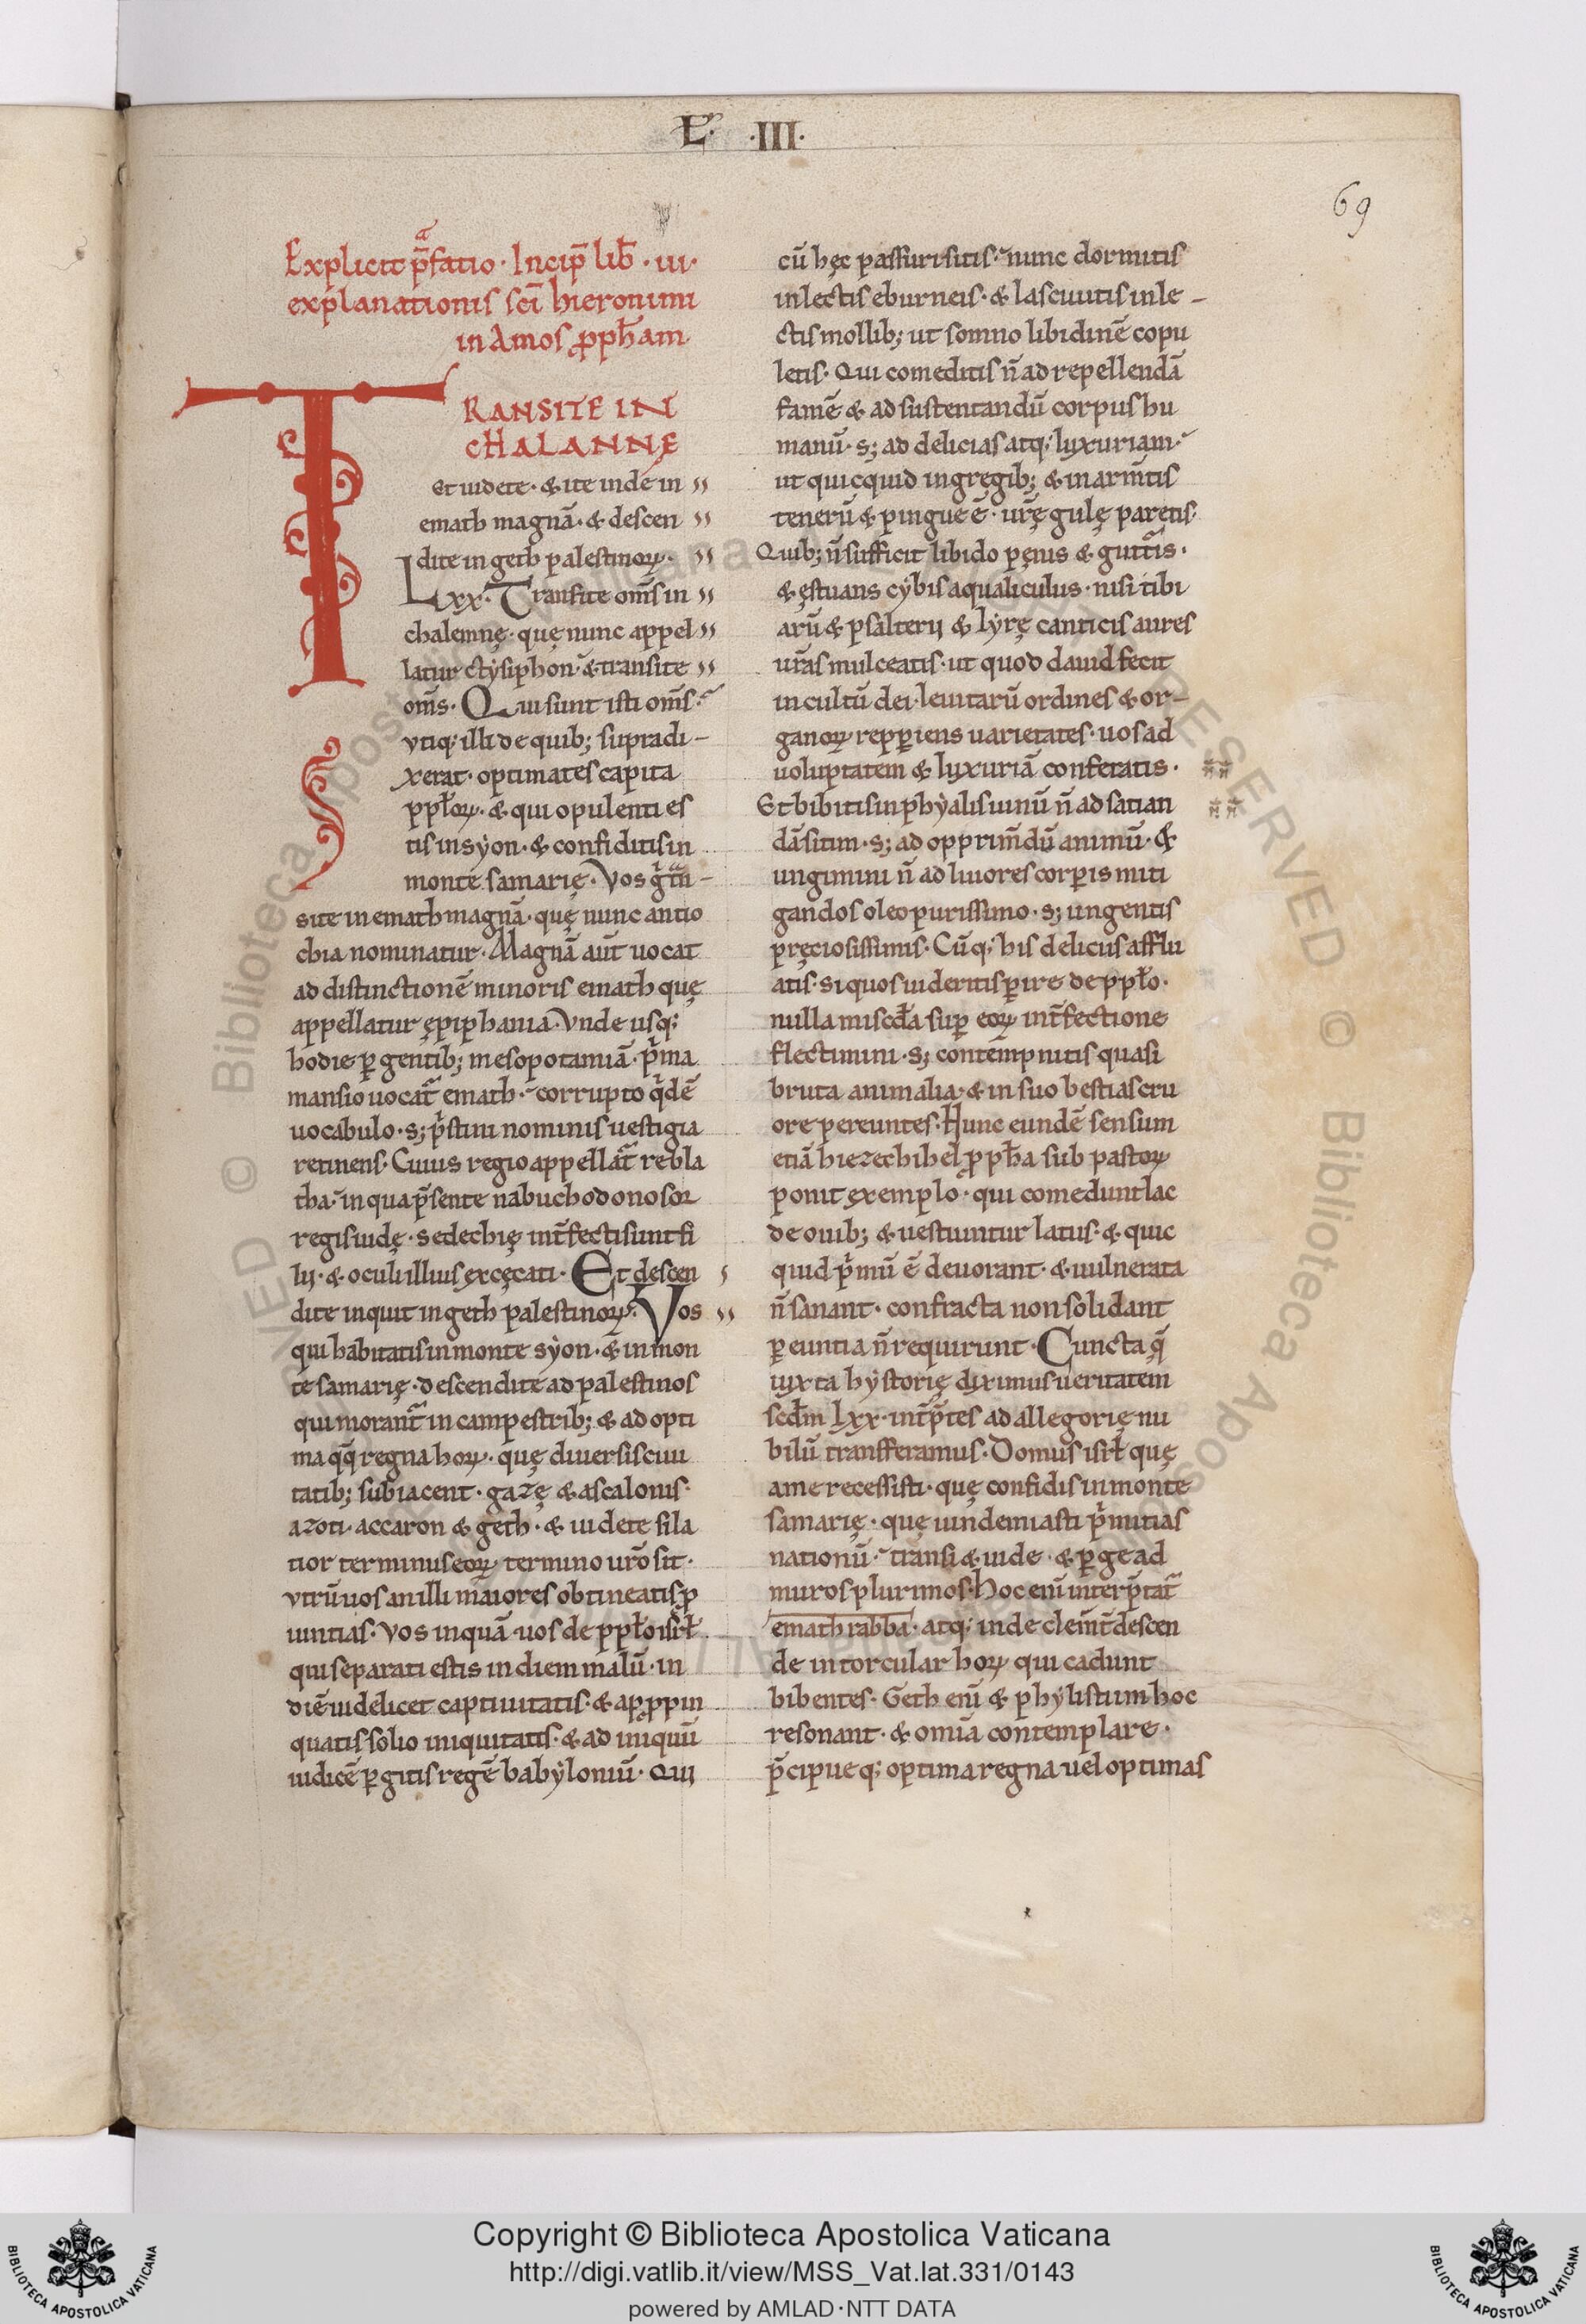 L̃. ·III·
69
Explicit p̄fatio · Incip̄ lib̄ · iii·
explanationis sc̄i hieronimi
in Amos ꝓph̄am
TRANSITE IN
CHALANNE
et uidete · & ite inde in
emath magnā · & descen
dite in geth palestinoꝝ.
Lxx. Transite om̄s in
chalemnę · quę nunc appel
latur ctẏsiphon · & transite
om̄s. Qui sunt isti om̄s.
vtiq; illi de quib; supradi-
xerat · optimates capita
pp̄loꝝ · & qui opulenti es
tis in sẏon · & confiditis in
monte samarię. Vos g̊ trā-
site in emath magnā · quę nunc antio
chia nominatur. Magnā aūt uocat
ad distinctionē minoris emath quę
appellatur ępiphania. Vnde usq;
hodie ꝑgentib; mesopotamiā · p̄ma
mansio uocat̄ emath · corrupto q̄dē
uocabulo · s; p̄stini nominis uestigia
retinens. Cuius regio appellat̄ rebla
tha · in qua p̄sente nabuchodonosor
regis iudę · sedechię int̄fecti sunt fi
lij · & oculi illius excęcati. Et descen
dite inquit in geth palestinoꝝ. Vos
qui habitatis in monte sẏon · & in mon
te samarię · descendite ad palestinos
qui morant̄ in campestrib; & ad opti
ma q̄q̄ regna hoꝝ · quę diuersis ciui
tatib; subiacent · gazę & ascalonis ·
azoti · accaron & geth · & uidete si la
tior terminus eoꝝ termino ur̄o sit ·
vtrū uos an illi maiores obtineatis ꝓ
uintias. Vos inquā uos de pp̄lo isr̄l
qui separati estis in diem malū · in
diē uidelicet captiuitatis · & apꝓpin
quatis solio iniquitatis · & ad iniquū
iudicē ꝑgitis regē babẏloniū · Qui
cū hęc passuri sitis · nunc dormitis
in lectis eburneis · & lasciuitis in le-
ctis mollib; ut somno libidinē copu
letis. Qui comeditis n̄ ad repellendā
famē & ad sustentandū corpus hu
manū · s; ad delicias atq; luxuriam ·
ut quicquid in gregib; & in arm̄tis
tenerū & pingue ē · ur̄ę gulę paretis
Quib; n̄ sufficit libido pęnis & gutturis ·
& ęstuans cẏbis aqualiculus · nisi tibi
arū & psalterij & lẏrę canticis aures
ur̄as mulceatis · ut quod dauid fecit
in cultū dei · leuitarū ordines & or-
ganoꝝ repꝑiens uarietates · uos ad
uoluptatem & luxuriā conferatis ·
Et bibitis in phẏalis uinū n̄ ad satian
dā sitim · s; ad opprim̄dū animū · &
ungimini n̄ ad liuores corꝑis miti
gandos oleo purissimo · s; ungentis
pręciosissimis. Cūq; his deliciis afflu
atis · si quos uideritis ꝑire de pp̄lo ·
nulla misc̄dia suꝑ eoꝝ int̄fectione
flectimini · s; contēpnitis quasi
bruta animalia · & in suo bestias cru
ore pereuntes. Hunc eundē sensum
etiā hiezechihel ꝓph̄a sub pastoꝝ
ponit exemplo · qui comedunt lac
de ouib; & uestiuntur latus · & quic
quid p̄mū ē deuorant · & uulnerata
n̄ sanant · confracta non solidant
ꝑeuntia n̄ requirunt. Cuncta q̄
iuxta hẏstorię diximus ueritatem
scd̄m lxx. int̄p̄tes ad allegorię nu
bilū transferamus. Domus isr̄l quę
a me recessisti · quę confidis in monte
samarię · quę uindemiasti p̄mitias
nationū · transi & uide · & ꝑge ad
muros plurimos. Hoc enī interp̄tat̄
emath rabba · atq; inde clem̄t̄ descen
de in torcular hoꝝ qui cadunt
bibentes. Geth enī & phẏlistiim hoc
resonant · & omīa contemplare ·
p̄cipueq; optima regna uel optimas
Copyright © Biblioteca Apostolica Vaticana
http://digi.vatlib.it/view/MSS_Vat.lat.331/0143
powered by AMLAD·NTT DATA
BIBLIOTECA APOSTOLICA VATICANA
BIBLIOTECA APOSTOLICA VATICANA